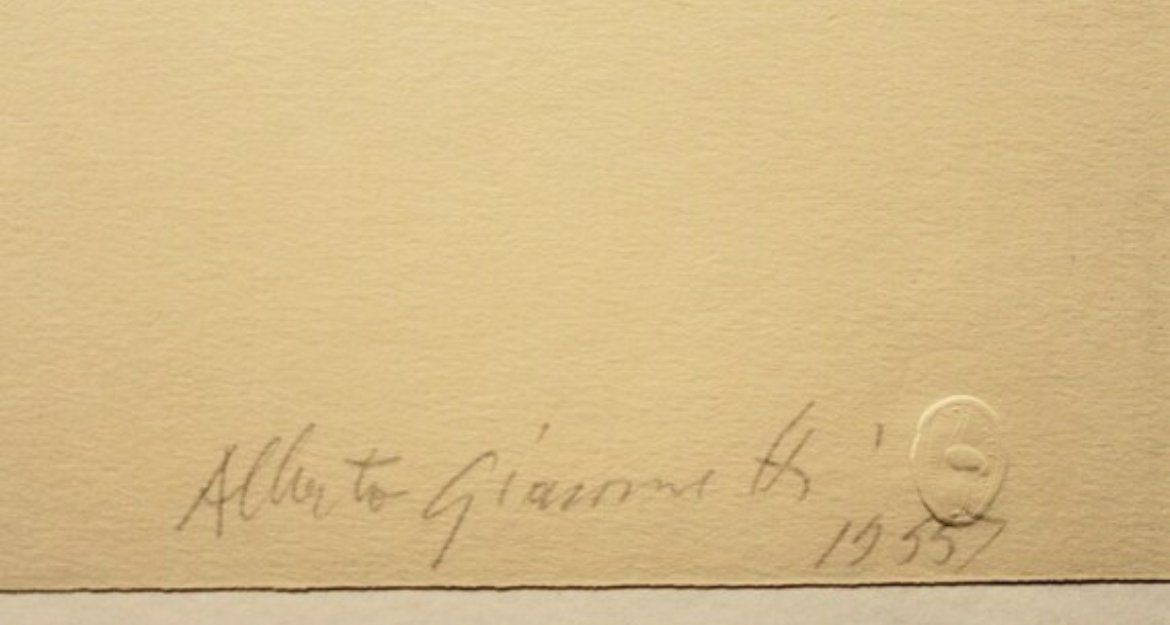 Alberto Giacometti
1955